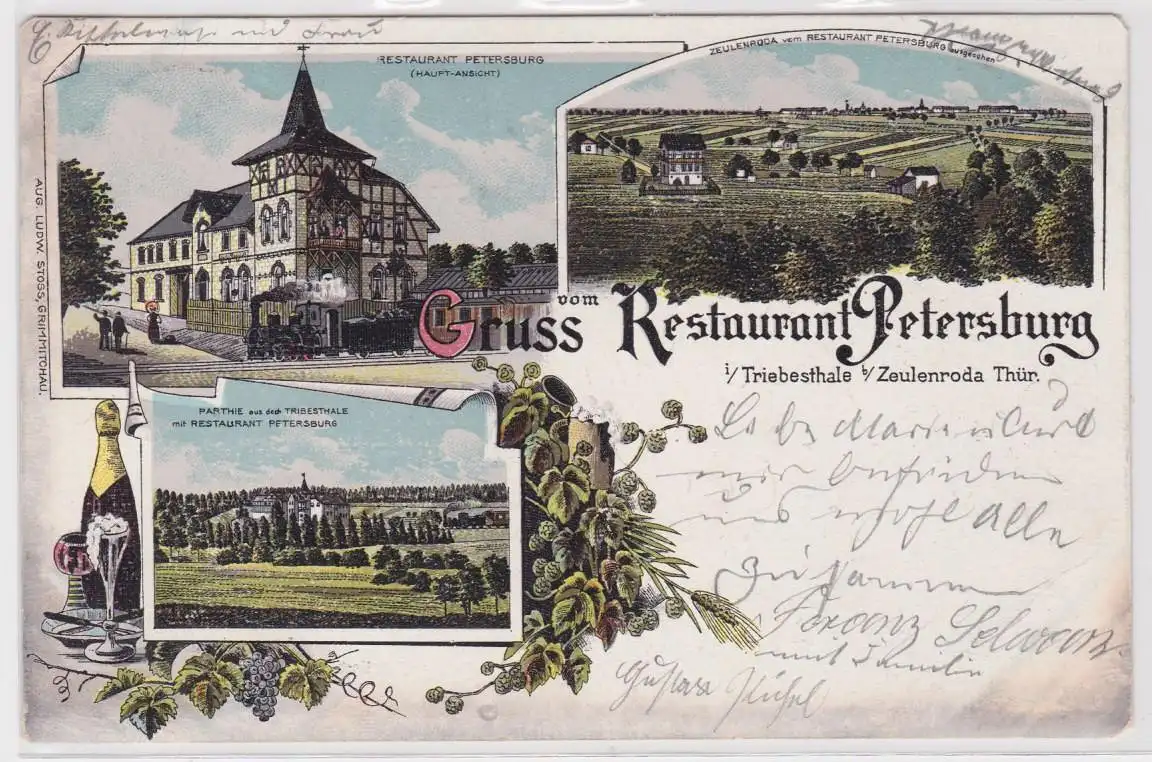 und Frau
RESTAURANT PETERSBURG
(HAUPT-ANSICHT)
ZEULENRODA vom RESTAURANT PETERSBURG ausgesehen
AUG. LUDW. STOSS, GRIMMITCHAU.
Gruss vom Restaurant Petersburg
i/ Triebesthale b/ Zeulenroda Thür.
PARTHIE aus dem TRIBESTHALE
mit RESTAURANT PETERSBURG
Marie
wir befinden
uns wohl Alle
Zusammen
Franz Schwarz
mit Familie
Gustav